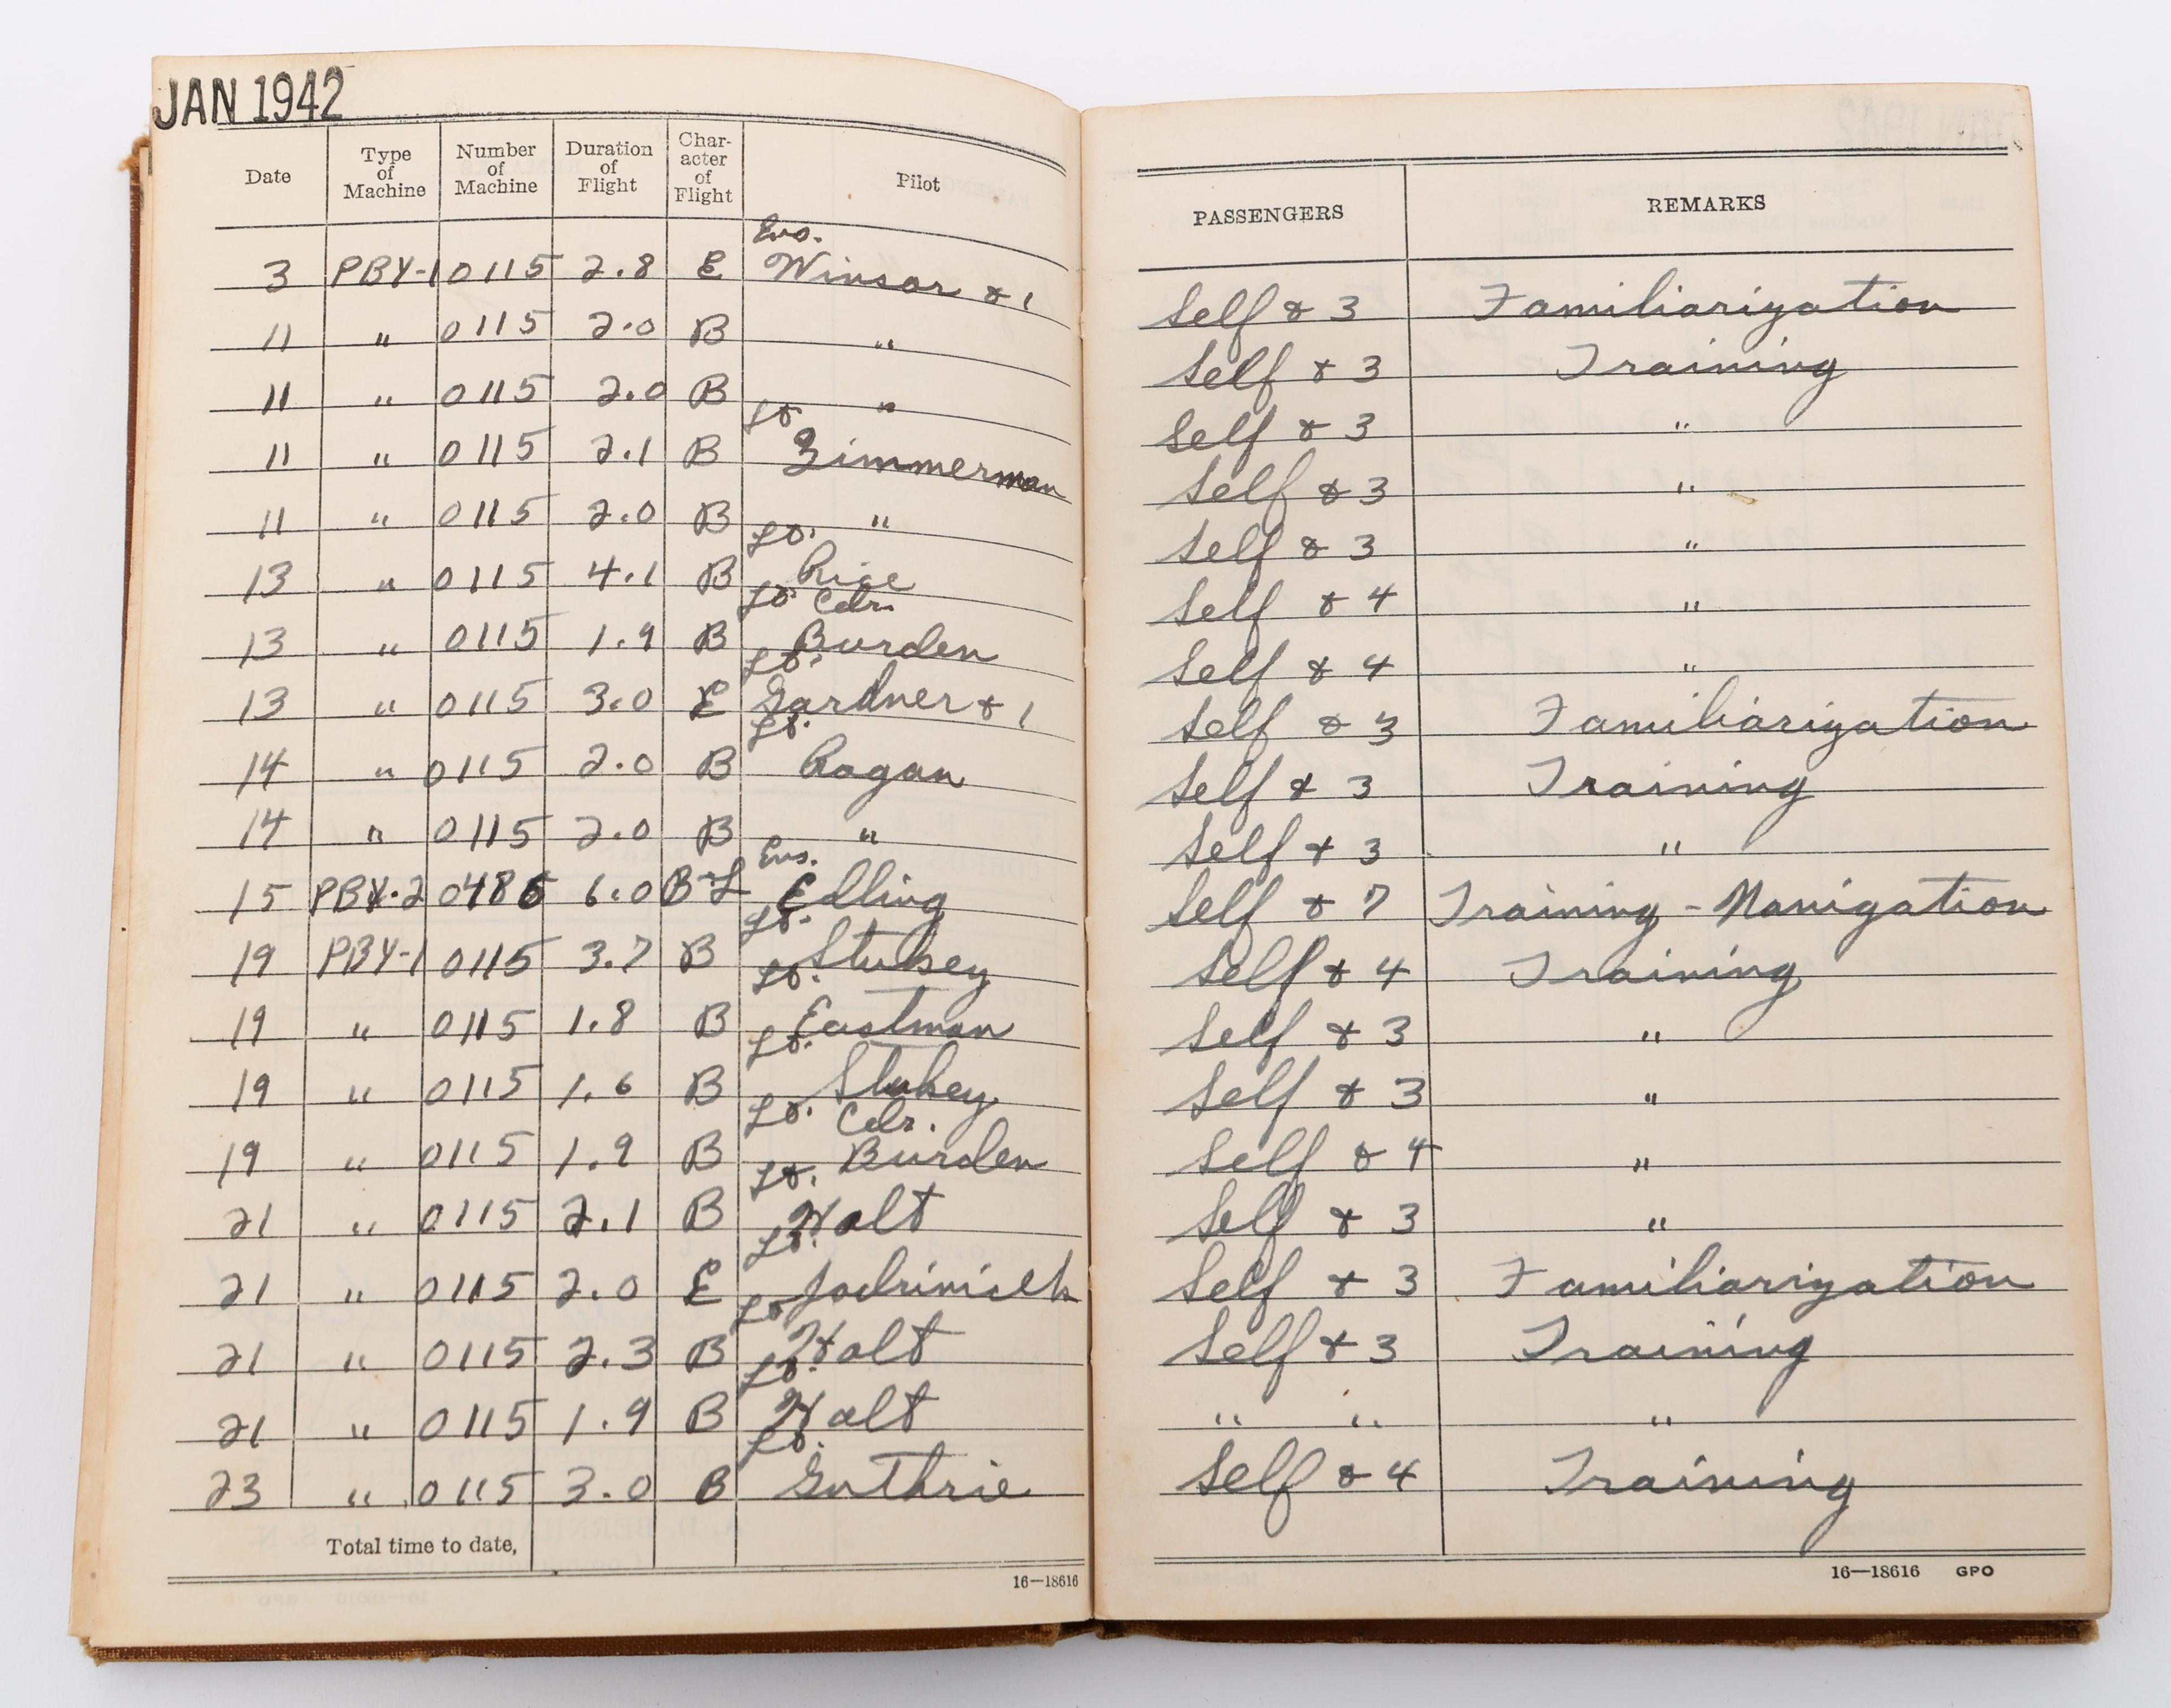 JAN 1942
Date Type of Machine Number of Machine Duration of Flight Char-acter of Flight Pilot PASSENGERS REMARKS
Ens.
3 PBY-1 0115 2.8 E Winsor & 1 Self & 3 Familiarization
11 " 0115 2.0 B " Self & 3 Training
11 " 0115 2.0 B " Self & 3 "
Lt.
11 " 0115 2.1 B Zimmerman Self & 3 "
11 " 0115 2.0 B " Self & 3 "
Lt.
13 " 0115 4.1 B Rice Self & 4 "
Lt. Cdr.
13 " 0115 1.9 B Burden Self & 4 "
Lt.
13 " 0115 3.0 E Gardner & 1 Self & 3 Familiarization
Lt.
14 " 0115 2.0 B Ragan Self & 3 Training
14 " 0115 2.0 B " Self & 3 "
Ens.
15 PBY-2 0486 6.0 B-L Edling Self & 7 Training - Navigation
Lt.
19 PBY-1 0115 3.7 B Stukey Self & 4 Training
Lt.
19 " 0115 1.8 B Eastman Self & 3 "
Lt.
19 " 0115 1.6 B Stukey Self & 3 "
Lt. Cdr.
19 " 0115 1.9 B Burden Self & 4 "
Lt.
21 " 0115 2.1 B Holt Self & 3 "
Lt.
21 " 0115 2.0 E Self & 3 Familiarization
Lt
21 " 0115 2.3 B Holt Self & 3 Training
Lt.
21 " 0115 1.9 B Holt " " "
Lt.
23 " 0115 3.0 B Guthrie Self & 4 Training
Total time to date,
16—18616
16—18616 GPO